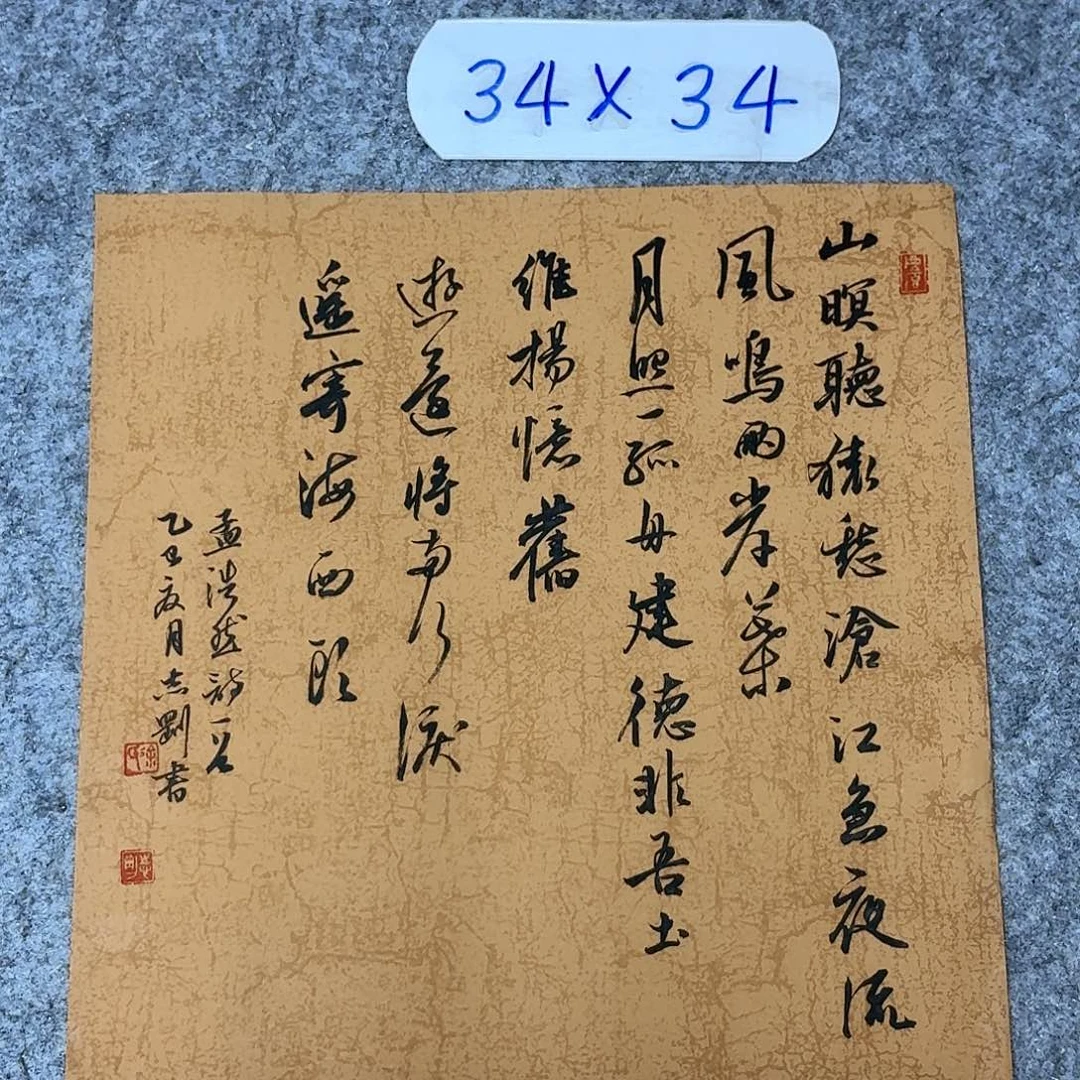 34X34
山暝聽猿愁滄江急夜流
風鳴兩岸葉
月照一孤舟建德非吾土
維揚憶舊
遊還將兩行淚
遙寄海西頭
孟浩然詩一首
乙巳夏月志剛書